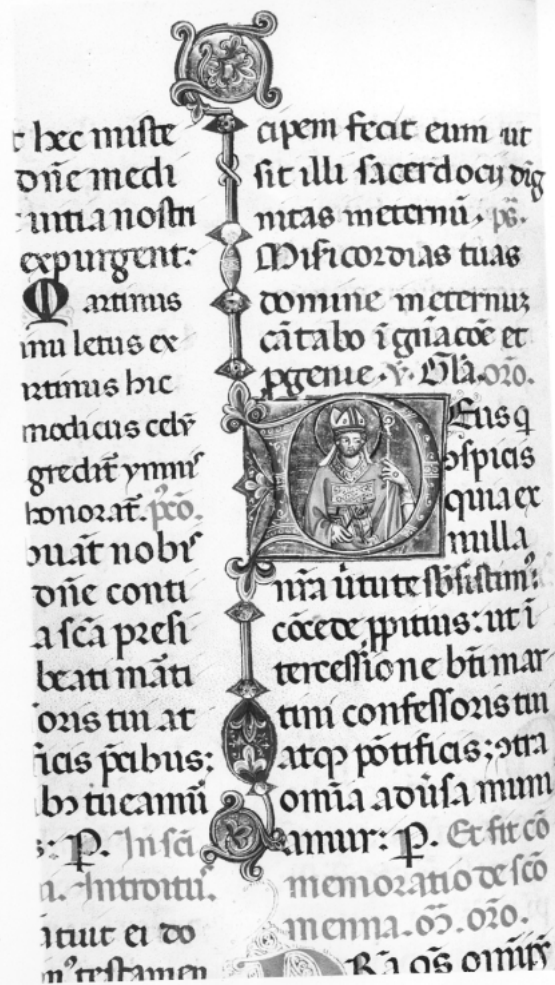 t hec miste
dn̄e medi
untia nostri
expurgent:
Martinus
inu letus ex
rtinus hic
modicus celū
gredit̄ ymnis
honorat̄. p̄cō.
buāt nobis
dn̄e conti
a sc̄a presi
beati mārti
oris tui at
ficis p̄cibus:
ib; tueamur
s: P. In sc̄i
n. Introitū.
atuit ei do
mꝰ testamen
cipem fecit eum ut
sit illi sacerdocij dig
nitas in eternū. ps̄.
Misericordias tuas
domine in eternuꝫ
cātabo ī gnāac̄oe et
ꝓgenie. v. Gl̄a. or̄o.
Deus q
ɔspicis
quia ex
nulla
nr̄a v̄tute sb̄sistimꝰ:
cōcede ꝓpitius: ut ī
tercessione bt̄i mar
tini confessoris tui
atqꝫ pōtificis; ɔtra
omīa adūsa muni
amur: P. Et fit cō
memoratio de sc̄o
menna. or̄o.
Ra qs̄ om̄ips̄